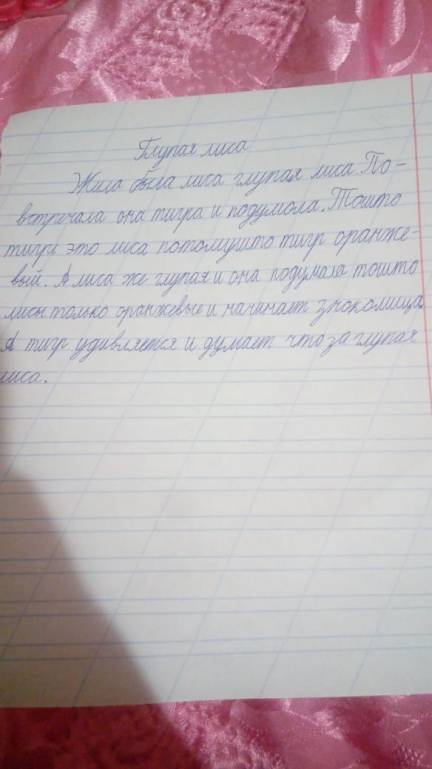 Глупая лиса
Жила была лиса глупая лиса. По-
встричала она тигра и подумола. Тошто
тигр это лиса потомушто тигр оранже-
вый. А лиса же глупая и она подумала тошто
лисы только оранжевые и начинает знокомица
А тигр удивляется и думает что за глупая
лиса.